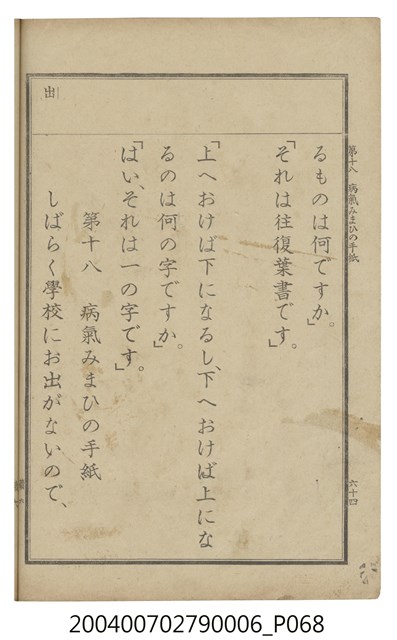 第十八 病氣みまひの手紙
六十四
るものは何ですか。」
「それは往復葉書です。」
「上へおけば下になるし、下へおけば上にな
るのは何の字ですか。」
「はい、それは一の字です。」
第十八 病氣みまひの手紙
しばらく學校にお出がないので、
出
200400702790006_P068